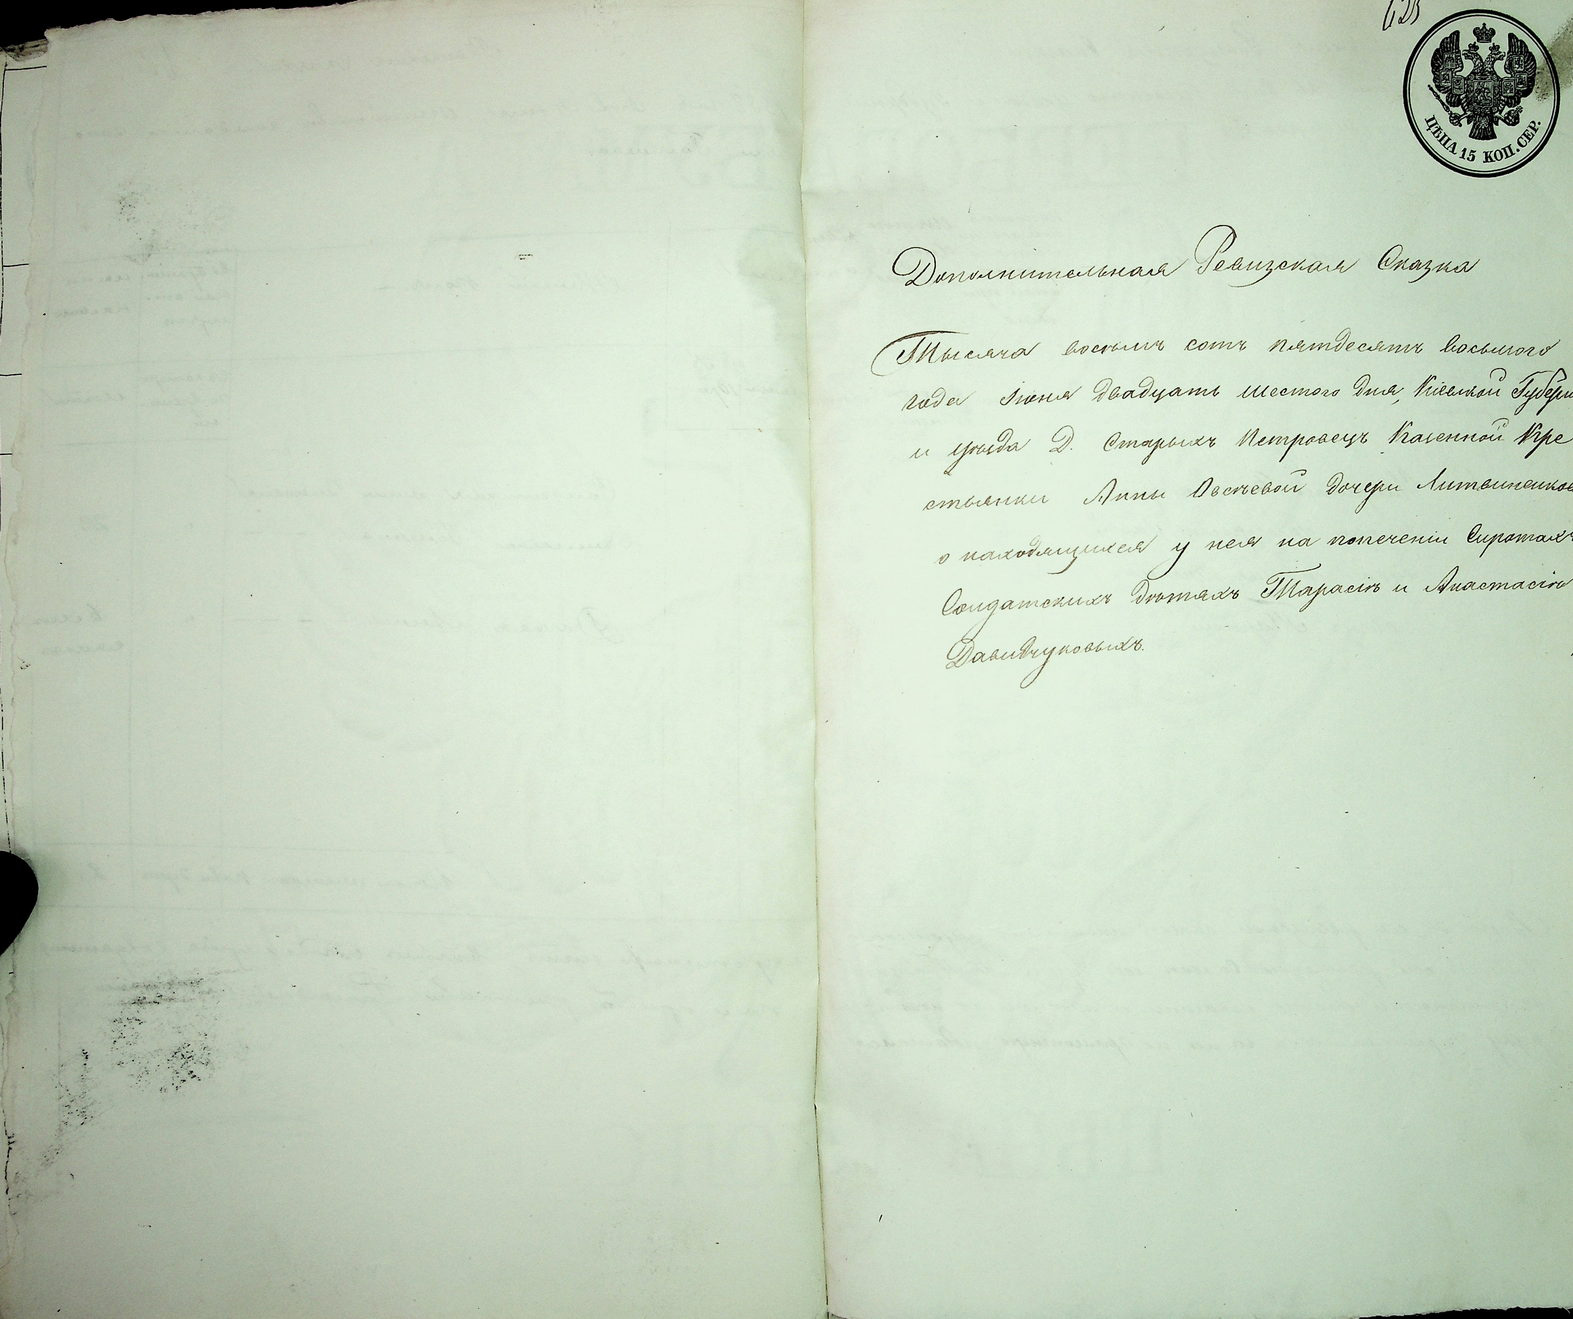 ЦѢНА 15 КОП. СЕР.
Дополнительная Ревизская Сказка
Тысяча восемь сотъ пятдесятъ восьмого
года Іюня двадцать шестого дня, Кіевской Губерн
и уѣзда Д. Старыхъ Петровецъ Казенной Кре
стьянки Анны Овсѣевой дочери Литвиненков
о находящихся у нея на попеченіи Сиротахъ
Солдатскихъ дѣтяхъ Тарасію и Анастасію
Давидчуковыхъ.